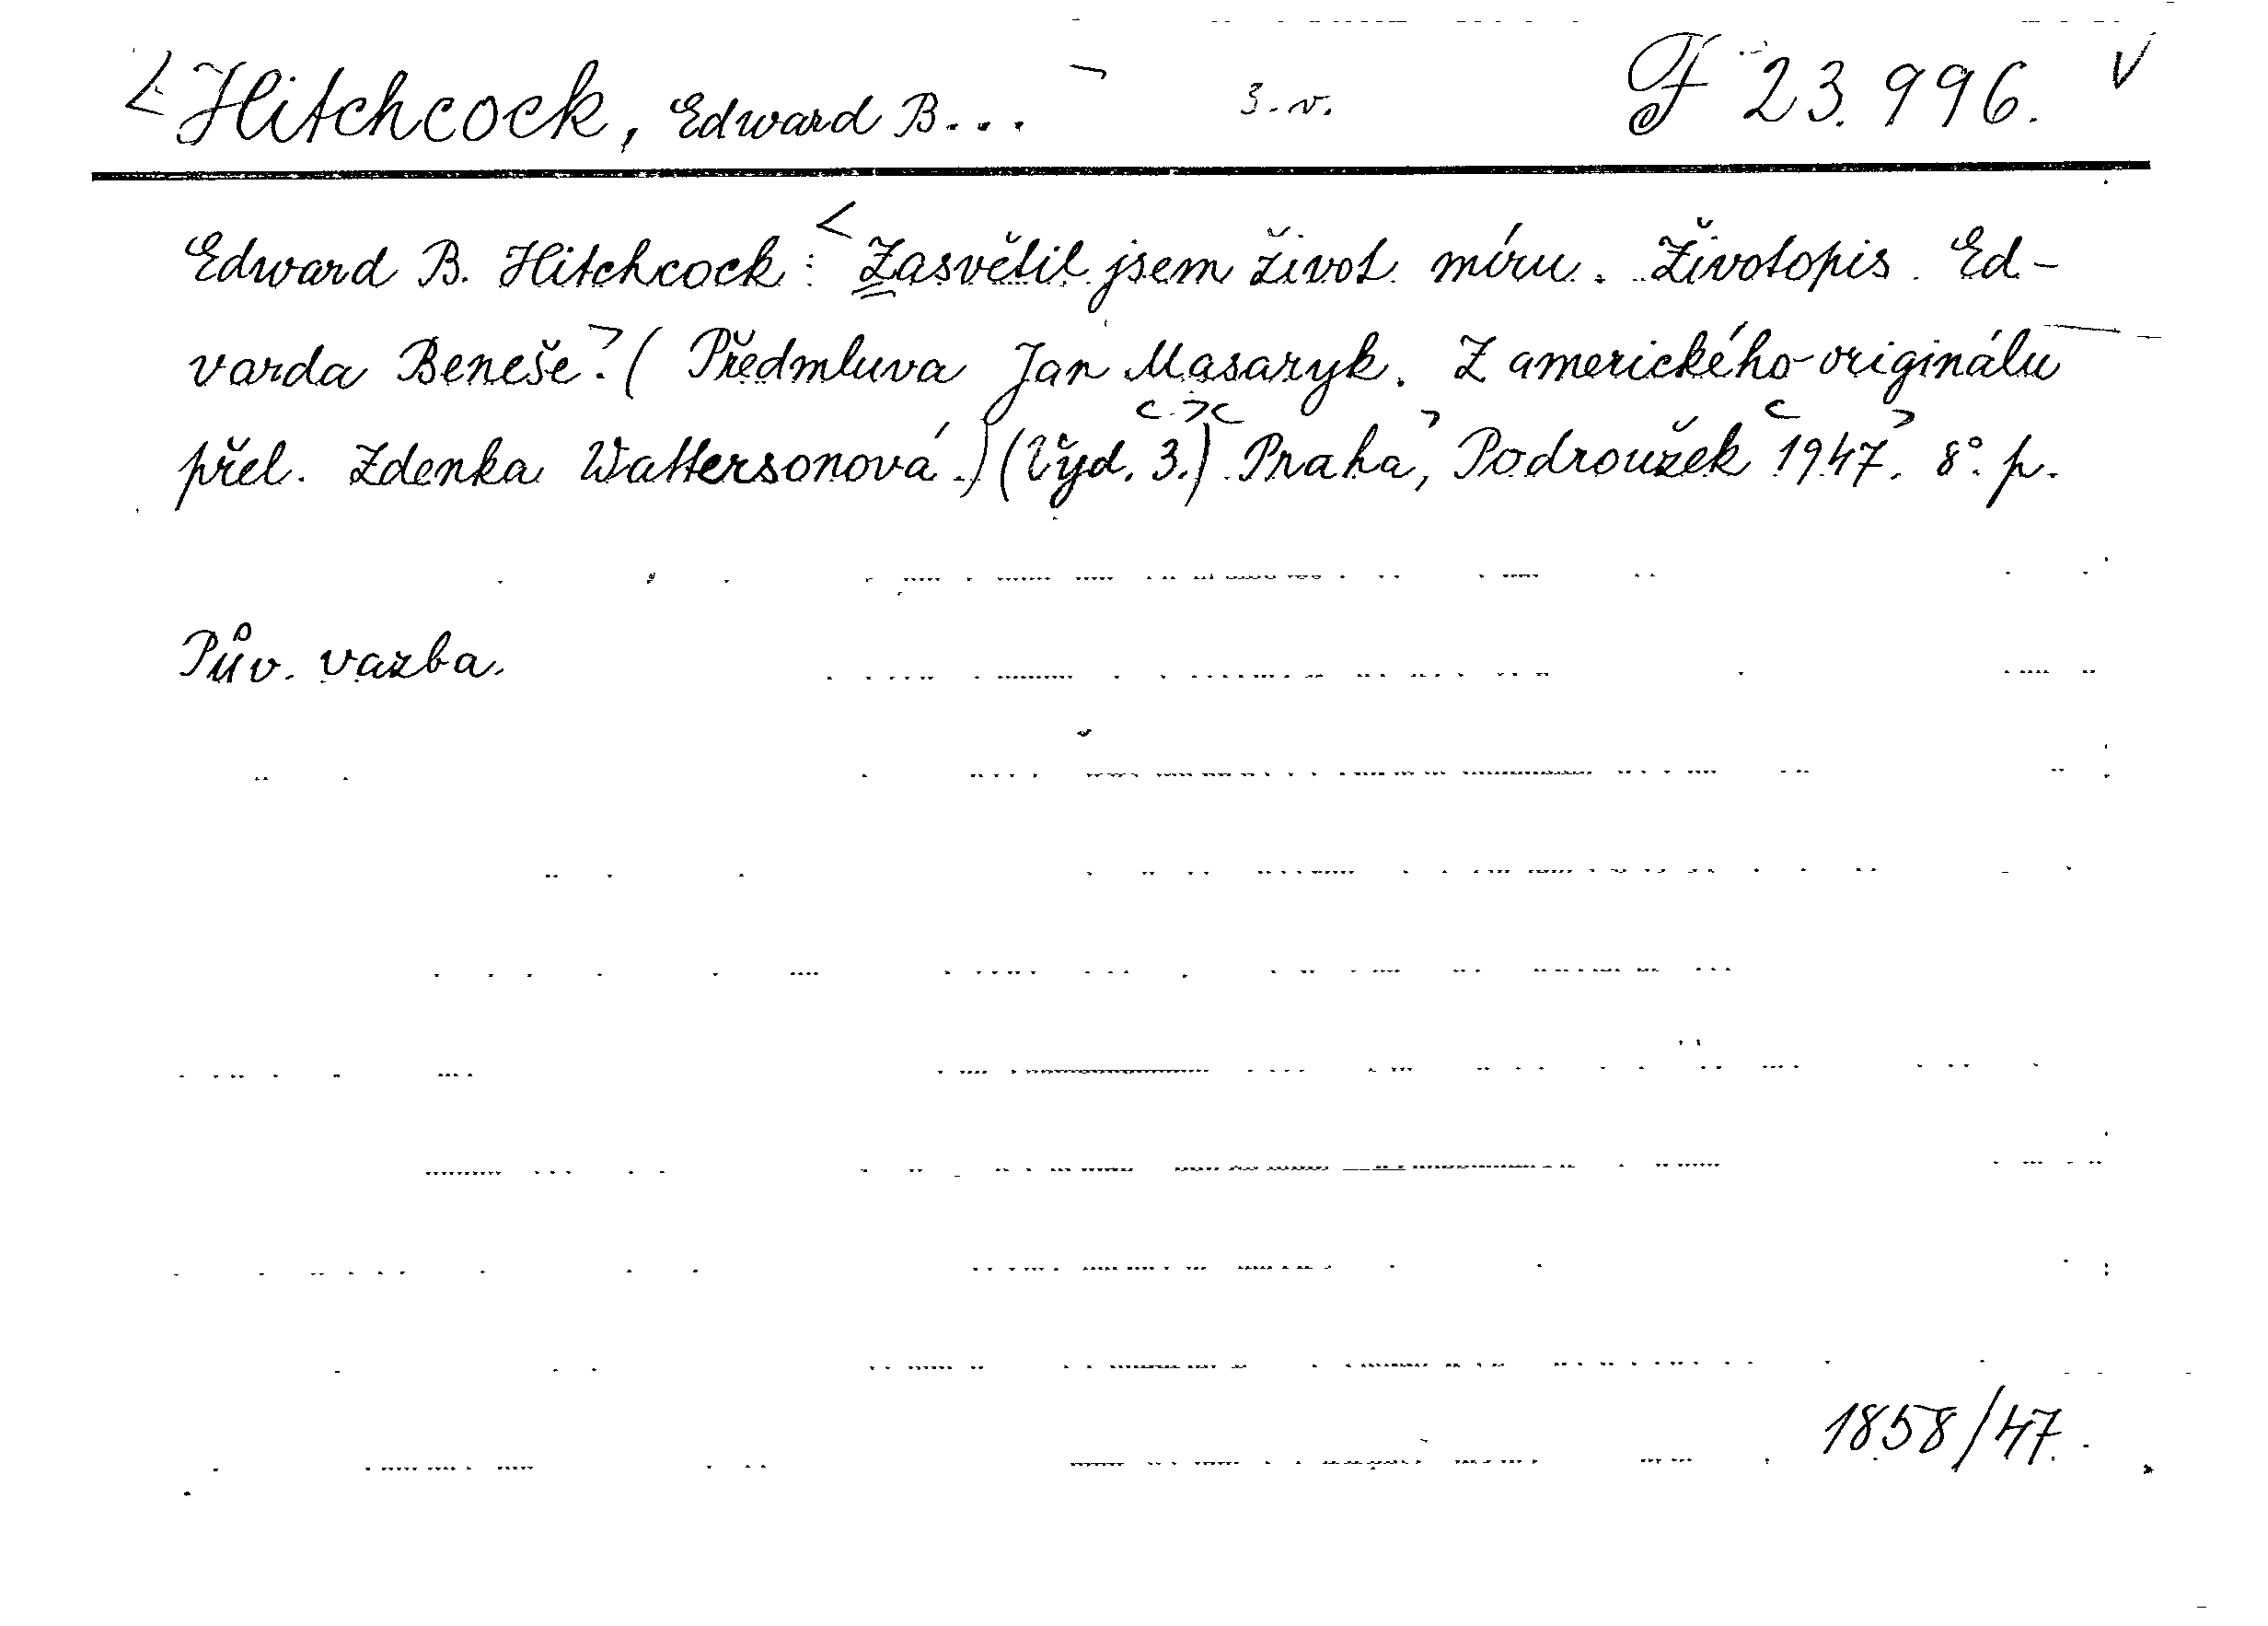 Hitchcock, Edward B... 3. v. F 23.996.
Edward B. Hitchcock: Zasvětil jsem život míru. Životopis Ed-
varda Beneše. (Předmluva Jan Masaryk. Z amerického originálu
přel. Zdenka Wattersonová.) (Vyd. 3.) Praha, Podroužek 1947. 8°. p.
Pův. vazba.
1858/47.